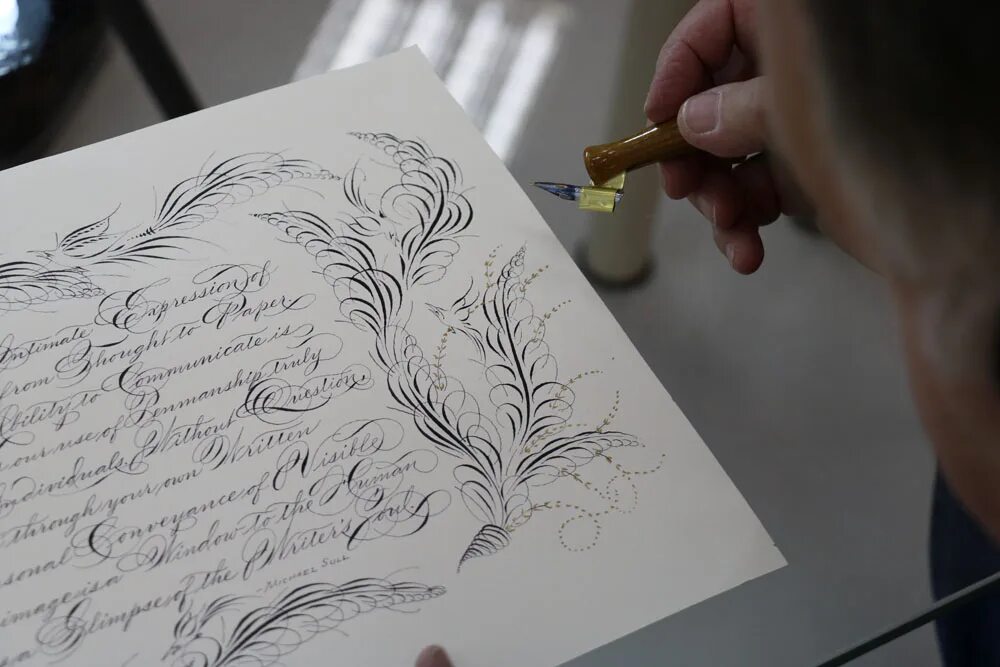 Intimate Expression of
from Thought to Paper
Ability to Communicate is
our use of Penmanship truly
Individuals Without Question,
through your own Written
Conveyance of Visible
image is a Window to the Human
a Glimpse of the Writer's Soul
-Michael Sull